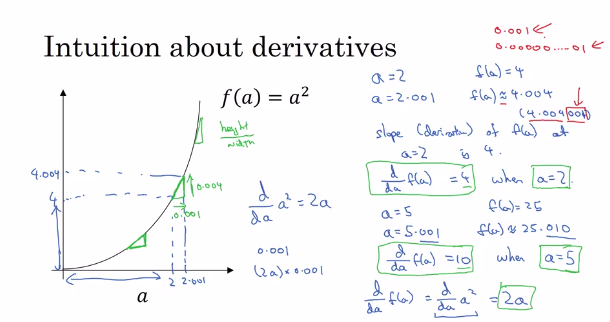 Intuition about derivatives
0.001 ←
0.00000.....01 ←
f(a) = a²
height
width
4.004
4
0.004
.0.001
2
2.001
a
d/da a² = 2a
0.001
(2a) × 0.001
a = 2 f(a) = 4
a = 2.001 f(a) ≈ 4.004
(4.004001)
slope (derivative) of f(a) at
a = 2 is 4.
d/da f(a) = 4 when a = 2.
a = 5 f(a) = 25
a = 5.001 f(a) ≈ 25.010
d/da f(a) = 10 when a = 5
d/da f(a) = d/da a² = 2a